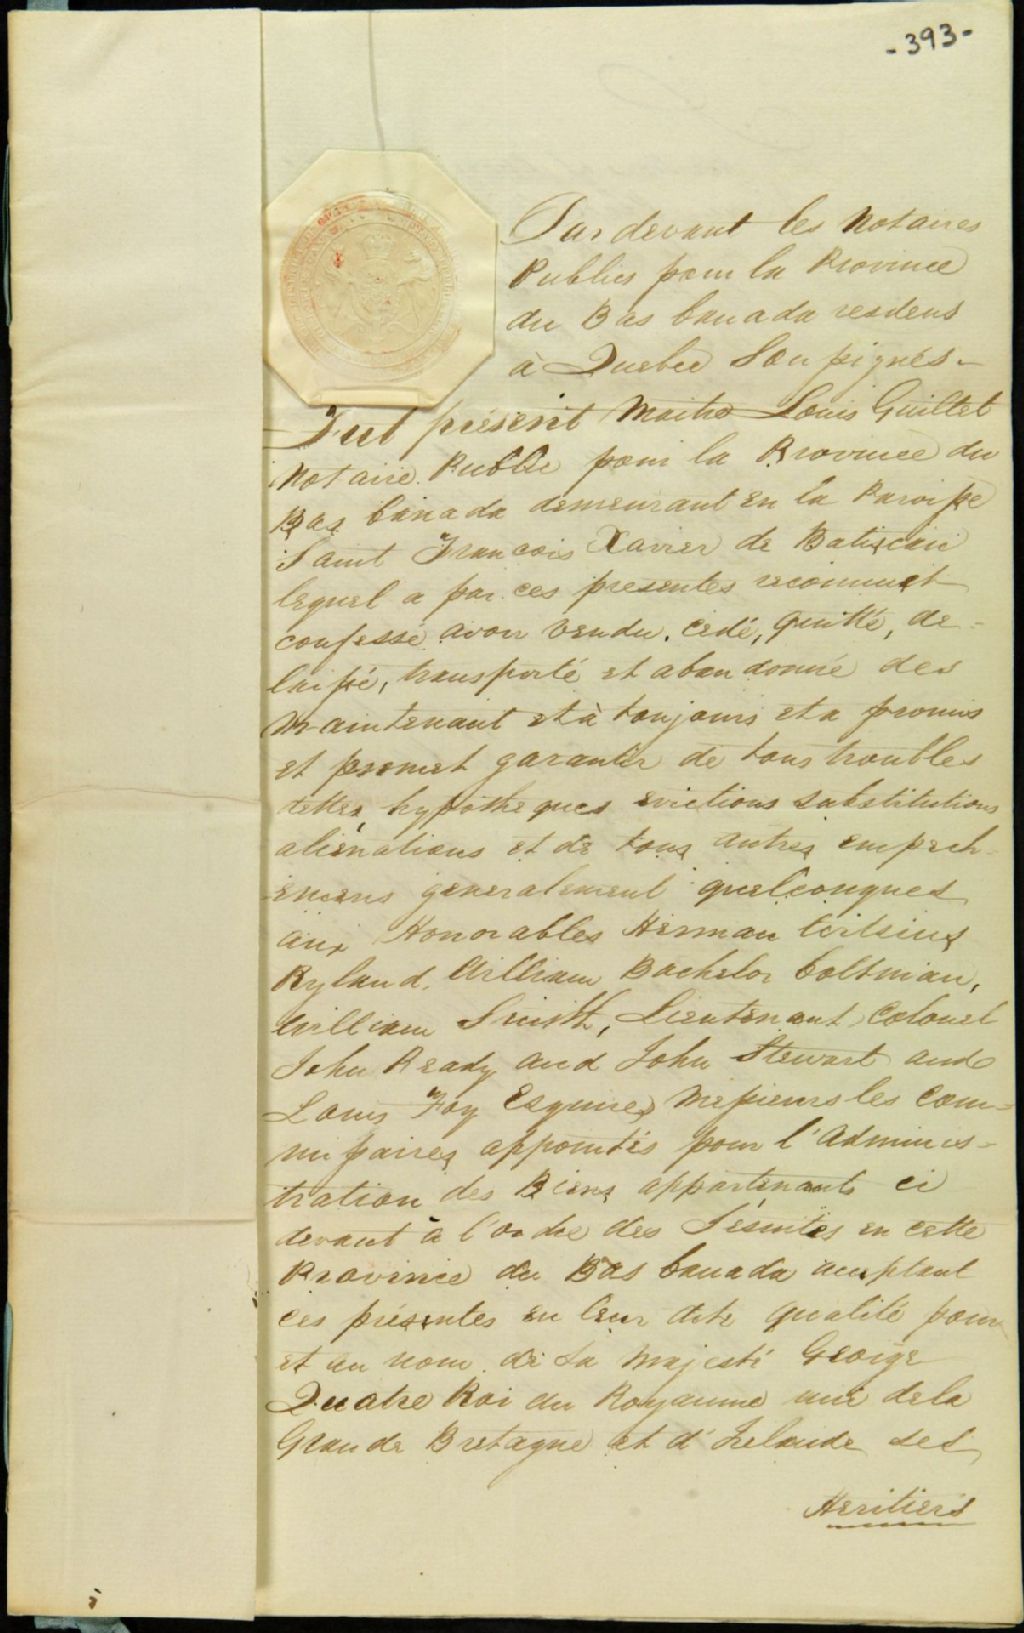 -393-
Par devant les Notaires
Publics pour la Province
du Bas Canada residens
à Quebec Soussignés-
Fut présent Maitre Louis Guillet
Notaire Public pour la Province du
Bas Canada demeurant en la Paroisse
Saint François Xavier de Batiscan
lequel a par ces presentes reconnu et
confessé avoir vendu, cedé, quitté, de-
laissé, transporté et abandonné des
maintenant et à toujours et a promis
et promet garantir de tous troubles
dettes hypotheques evictions substitutions
alienations et de tous autres empech-
emens generalement quelconques
aux Honorables Herman Witsius
Ryland, William Bachelor Coltman,
William Smith, Lieutenant Colonel
John Ready and John Stewart and
Louis Foy Esquires Messieurs les Com-
missaires appointés pour l'Adminis-
tration des Biens appartenants ci
devant à l'ordre des Jésuites en cette
Province du Bas Canada acceptant
ces présentes en leur dite qualité pour
et au nom de Sa Majesté George
Quatre Roi du Royaume uni de la
Grande Bretagne et d'Irelande ses
Heritiers